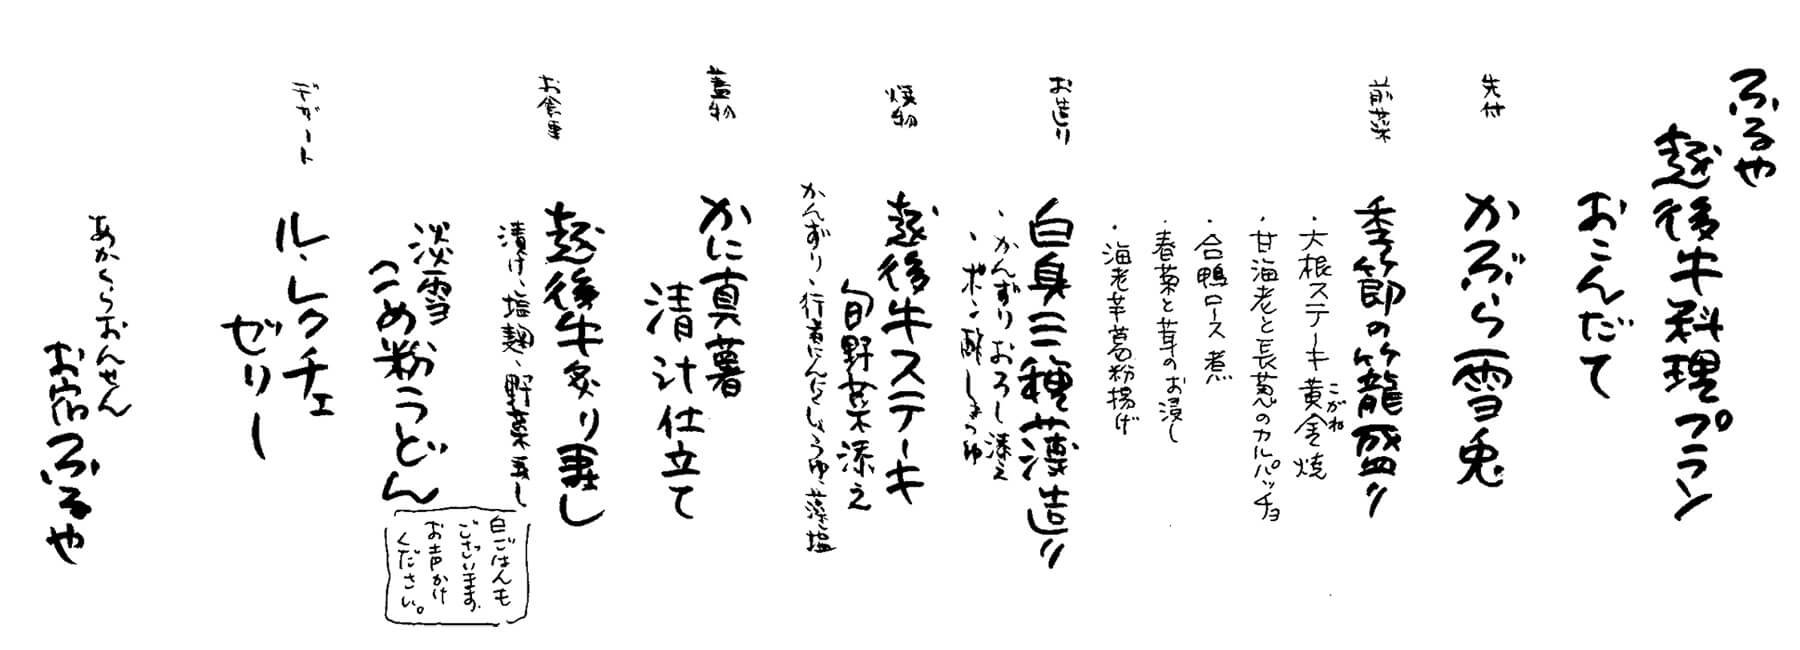 ふるや
越後牛料理プラン
おこんだて
先付
かぶら雪兎
前菜
季節の籠盛り
・大根ステーキ黄金焼
こがね
・甘海老と長葱のカルパッチョ
・合鴨ロース煮
・春菊と茸のお浸し
・海老芋葛粉揚げ
お造り
白身三種薄造り
・かんずりおろし添え
・ポン酢しょうゆ
焼物
越後牛ステーキ
旬野菜添え
かんずり、行者にんにくしょうゆ、藻塩
蓋物
かに真薯
清汁仕立て
お食事
越後牛炙り寿し
漬け、塩麹、野菜寿し
淡雪
こめ粉うどん
白ごはんも
ございます。
お声かけ
ください。
デザート
ル・レクチェ
ゼリー
あかくらおんせん
お宿ふるや